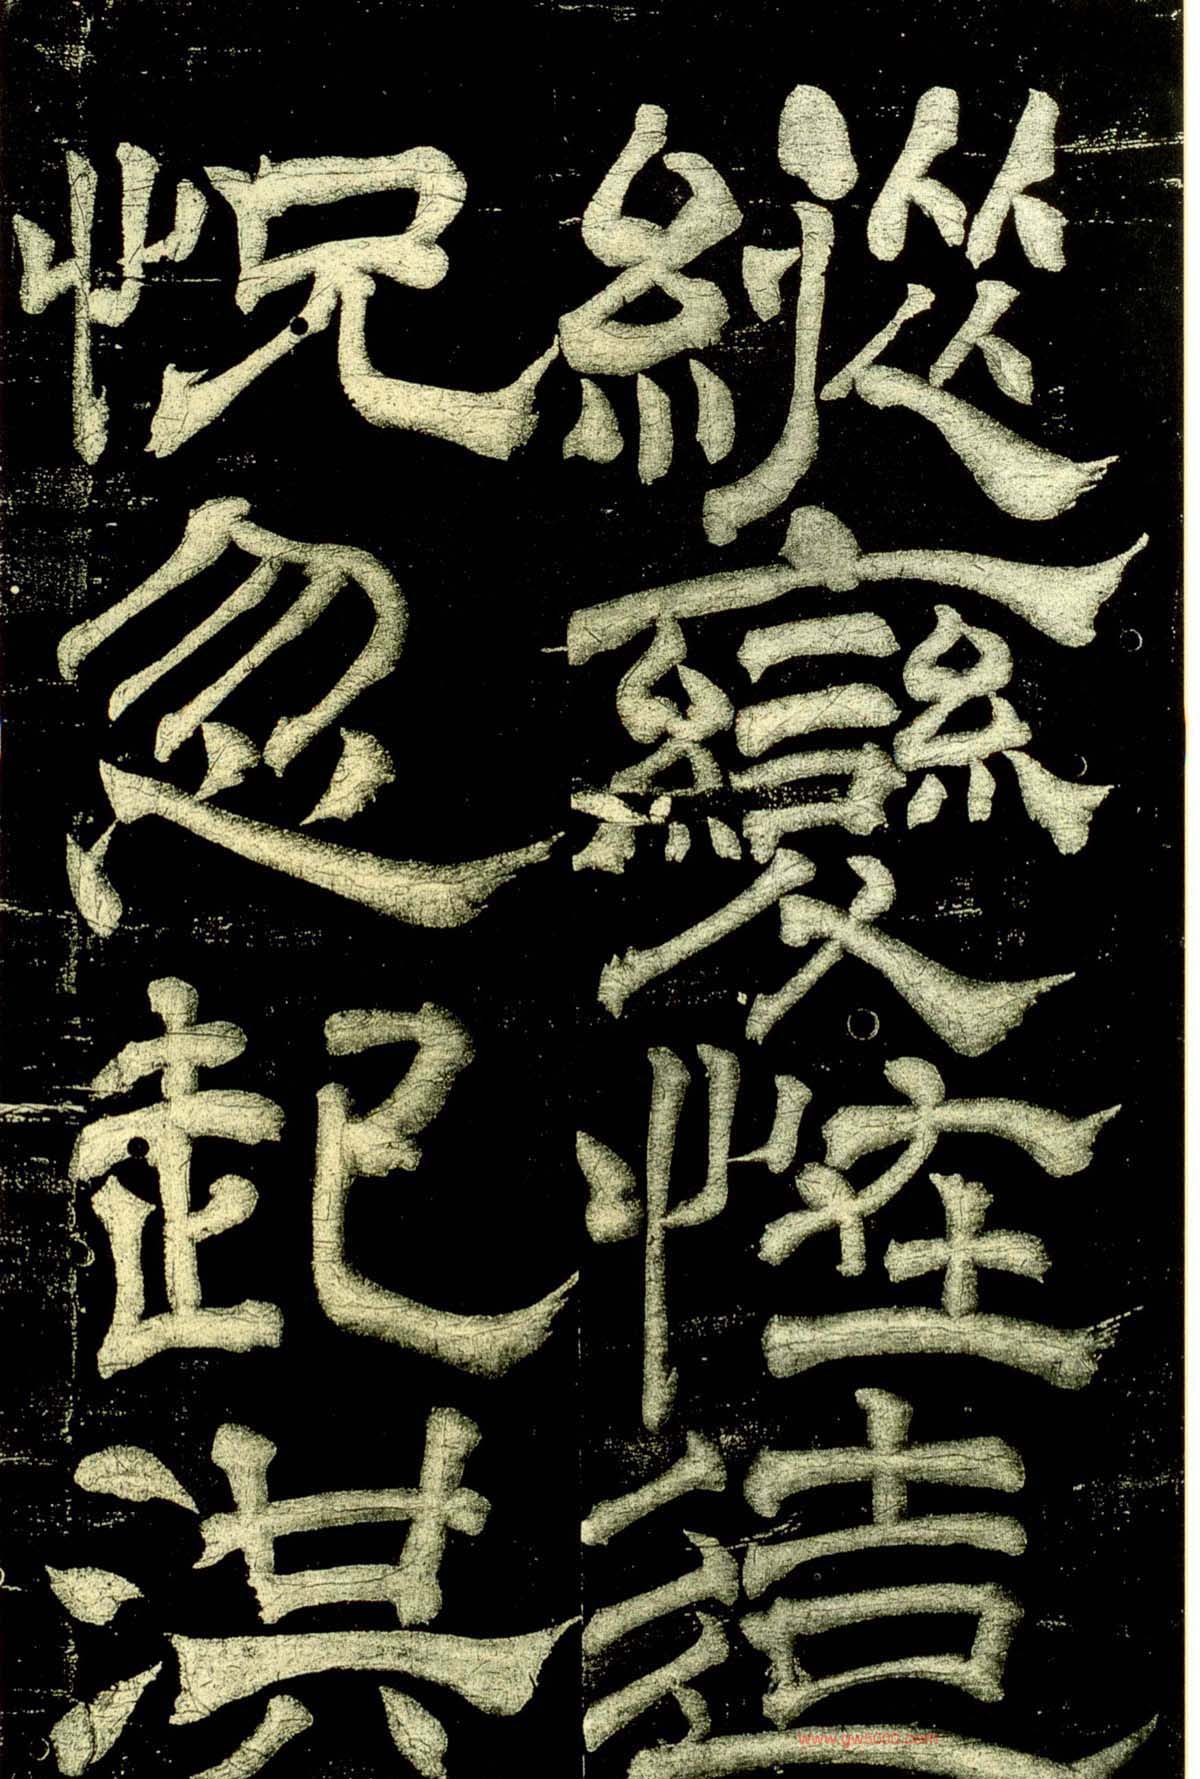 縱變怪造
怳忽起洪
www.gw5000.com